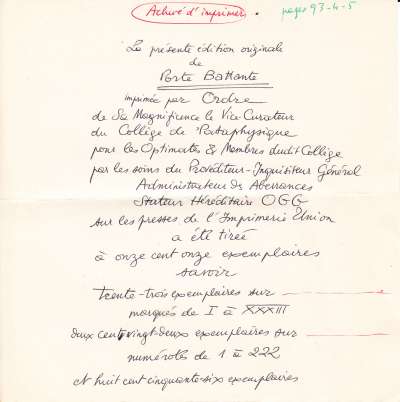 Achevé d'imprimer.
pages 93-4-5
La présente édition originale
de
Porte Battante
imprimée par Ordre
de Sa Magnificence le Vice Curateur
du Collège de 'Pataphysique
pour les Optimates & Membres dudit Collège
par les soins du Provéditeur-Inquisiteur Général
Administrateur des Aberrances
Stateur Héréditaire OGG
sur les presses de l'Imprimerie Union
a été tirée
à onze cent onze exemplaires
savoir
trente-trois exemplaires sur
marqués de I à XXXIII
deux cent vingt-deux exemplaires sur
numérotés de 1 à 222
et huit cent cinquante-six exemplaires